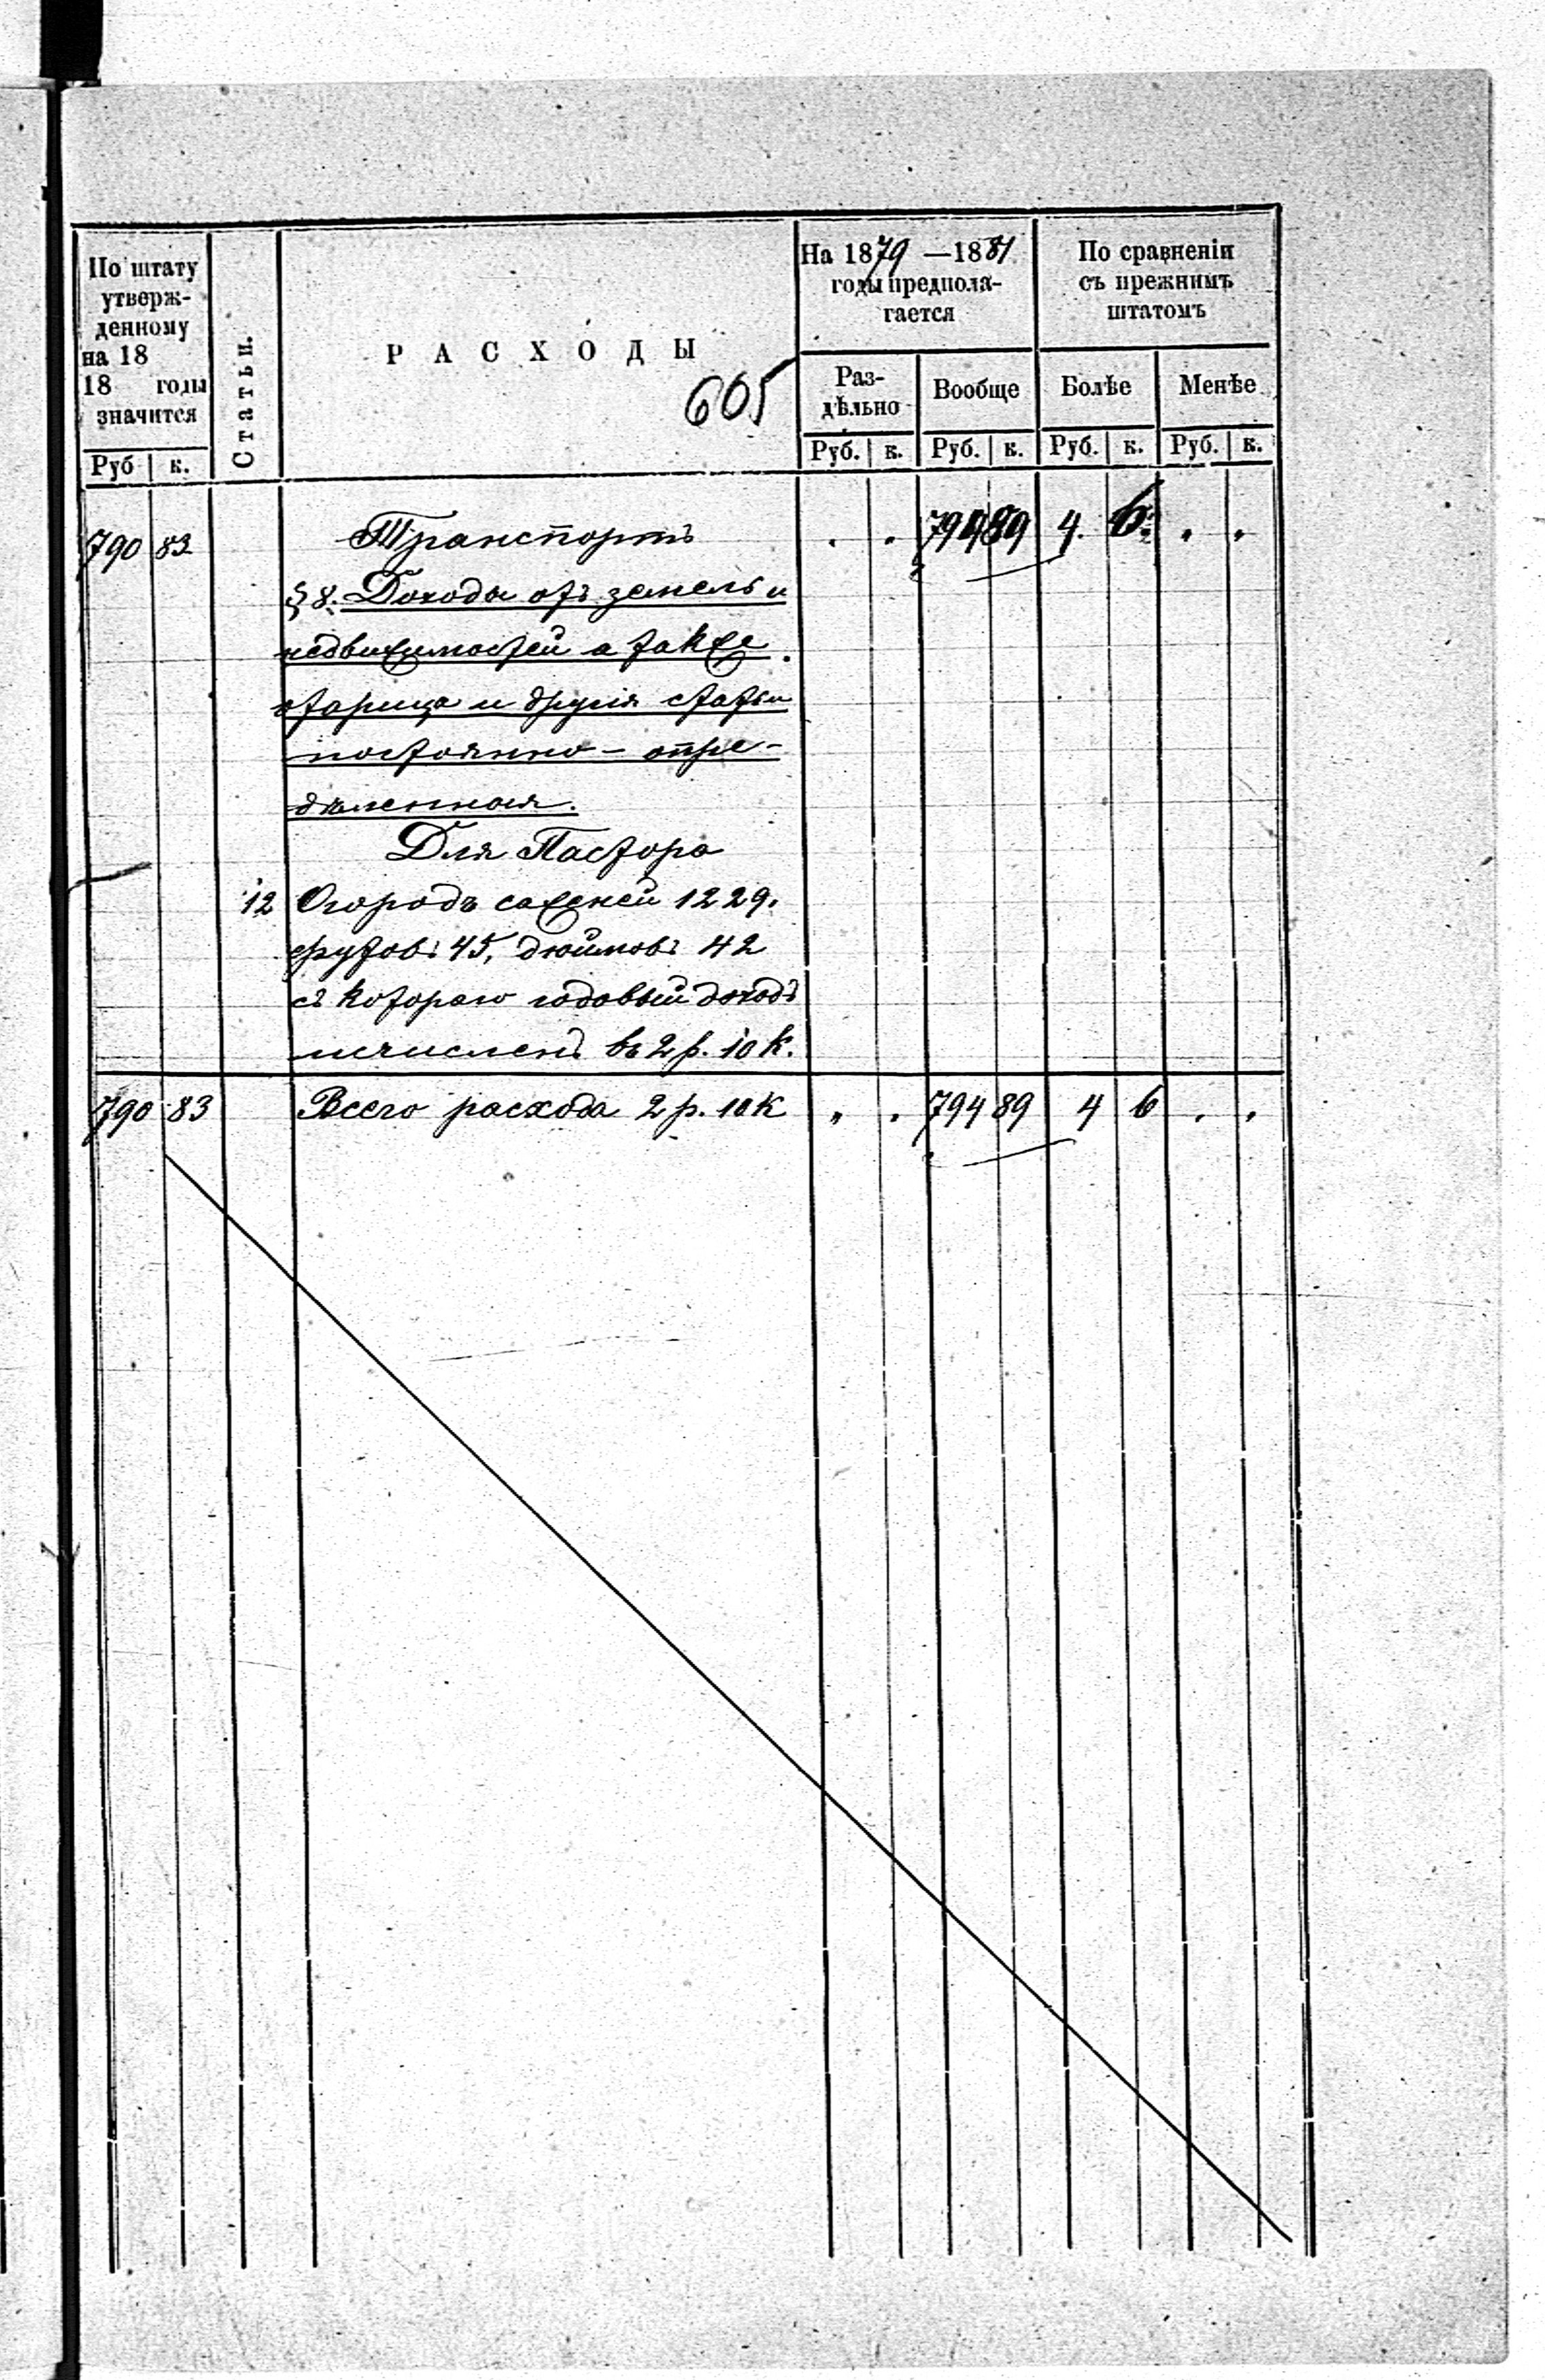 По штату
утверж-
денному
на 18
18 годы
значится
Руб к.
Статьи.
РАСХОДЫ
605
На 1879 —1881
годы предпола-
гается
Раз-
дѣльно
Руб. к.
Вообще
Руб. к.
По сравненіи
съ прежнимъ
штатомъ
Болѣе
Руб. к.
Менѣе
Руб. к.
790 83 Транспортъ . . 794 89 4. 6. . .
§ 8. Доходы отъ земель и
недвижимостей а также
и другія статьи
постоянно - опре-
дѣленная.
Для Пастора
12 Огородъ саженей 1229.
футовъ 45, дюймовъ 42
съ котораго годовый доходъ
исчисленъ въ 2 р. 10 к.
790 83 Всего расхода 2 р. 10 к „ . 794 89 4 6 . .